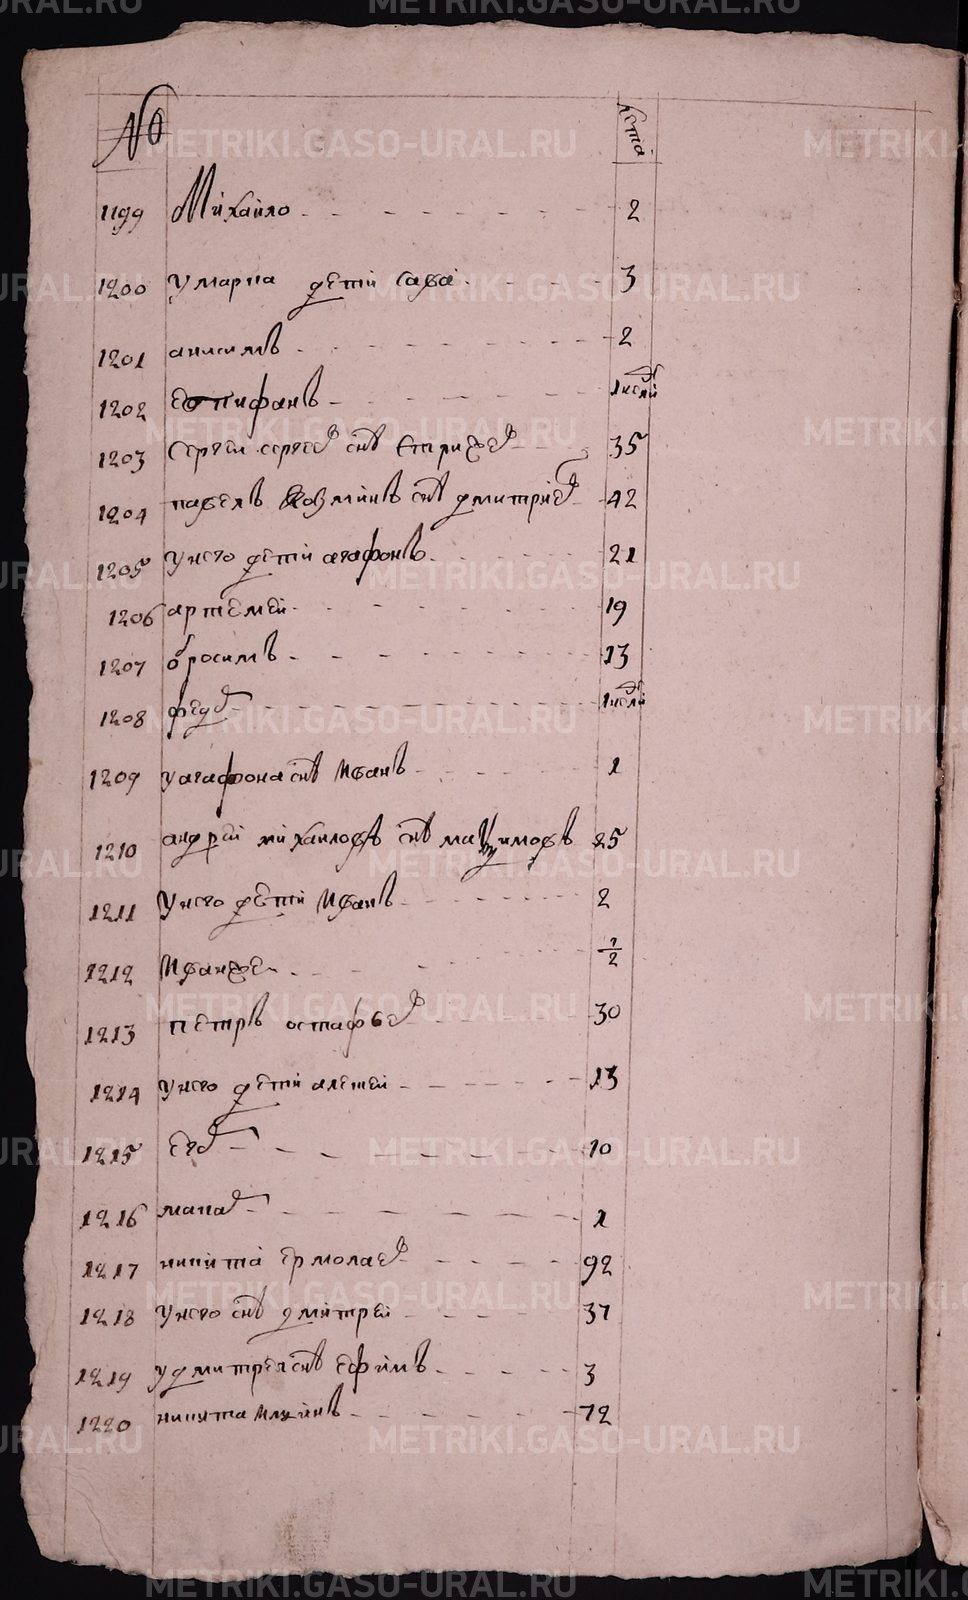 № лета
1199 Михайло 2
1200 у марка дети сава 3
1201 анисимъ 2
1202 епифанъ 1 недели
1203 Сергеи сергеевъ снъ 35
1204 павелъ козминъ снъ дмитриев 42
1205 у него дети агафонъ 21
1206 артемей 19
1207 абросимъ 13
1208 федор 1 недели
1209 у агафона снъ иванъ 1
1210 андрей михаиловъ снъ максимовъ 25
1211 у него дети иванъ 2
1212 1/2
1213 петръ остафьев 30
1214 у него дети алексей 13
1215 егор 10
1216 макар 1
1217 никита ермолаев 92
1218 у него снъ дмитрей 37
1219 у дмитрея снъ ефимъ 3
1220 никита 72
METRIKI.GASO-URAL.RU